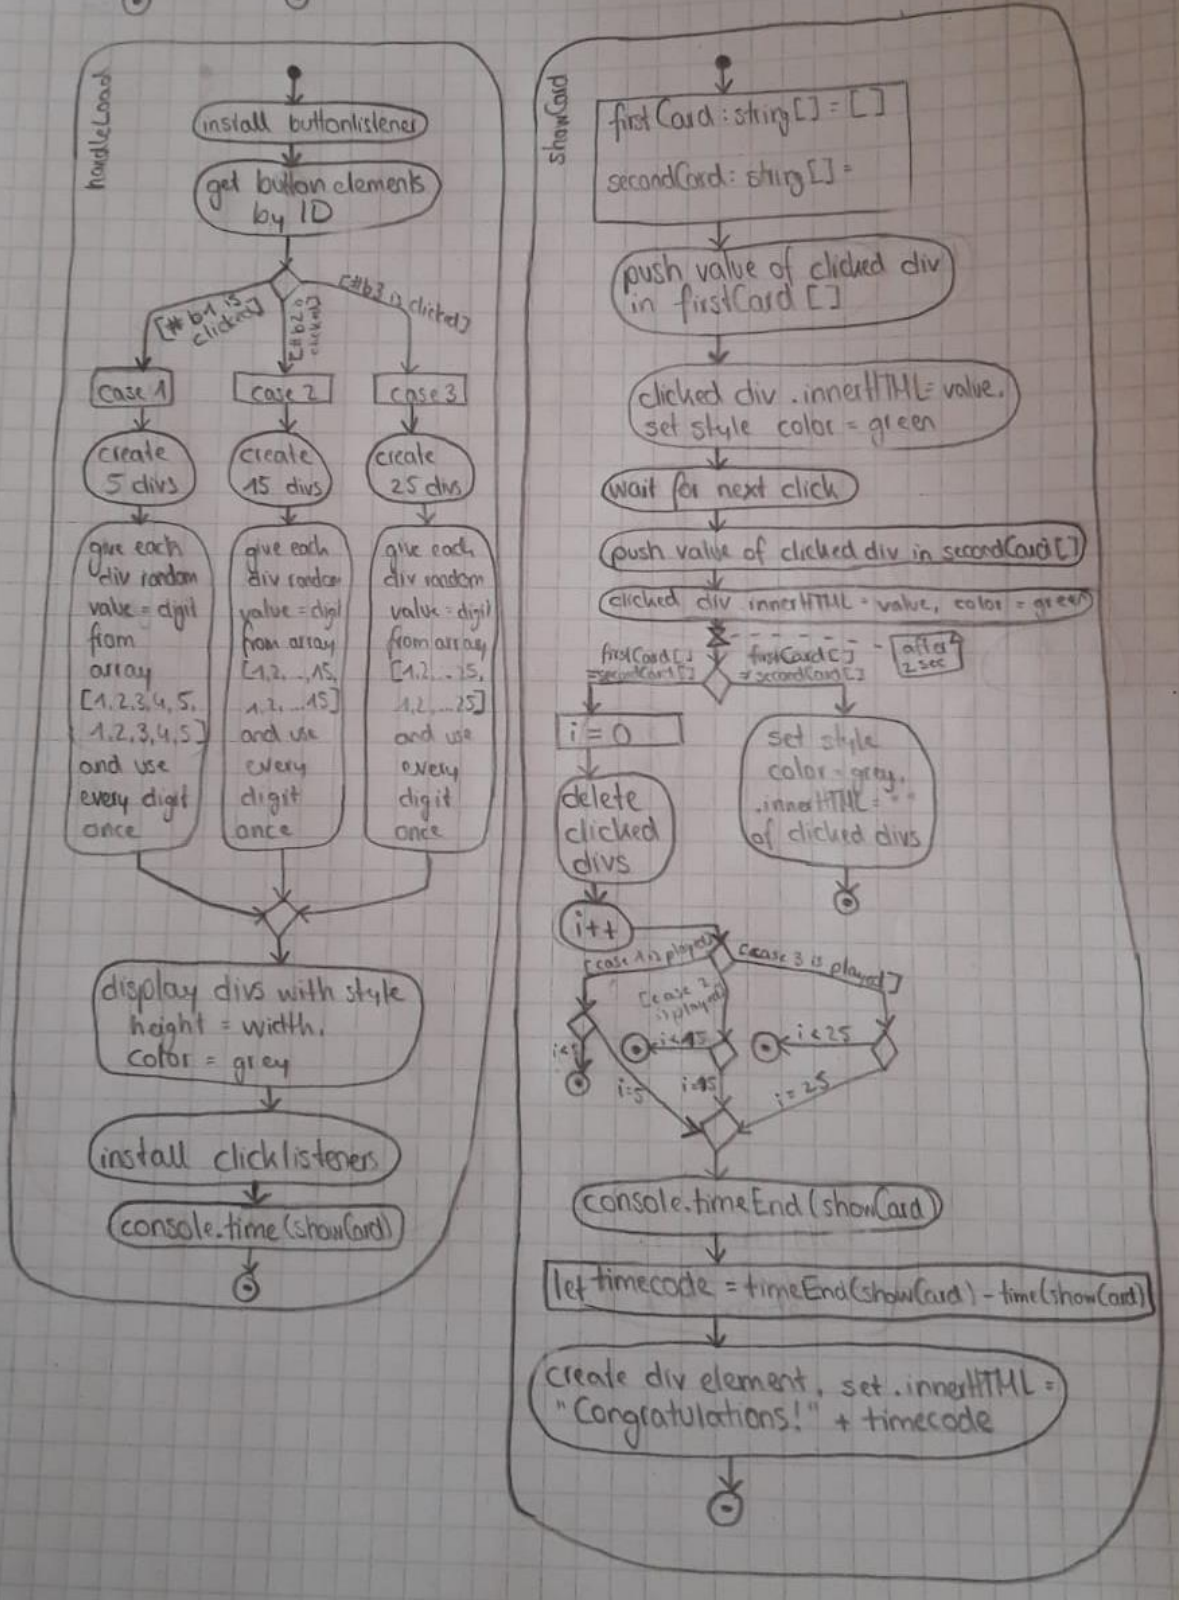 handleLoad
install buttonlistener
get button elements
by ID
[#b1 is
clicked]
[#b2 is
clicked]
[#b3 is clicked]
case 1
case 2
case 3
create
5 divs
create
15 divs
create
25 divs
give each
div random
value = digit
from
array
[1,2,3,4,5,
1,2,3,4,5]
and use
every digit
once
give each
div random
value = digit
from array
[1,2,...,15,
1,2,...15]
and use
every
digit
once
give each
div random
value = digit
from array
[1,2...25,
1,2,...25]
and use
every
digit
once
display divs with style
height = width,
color = grey
install clicklisteners
console.time(showCard)
showCard
firstCard : string[] = []
secondCard : string[] =
push value of clicked div
in firstCard []
clicked div .innerHTML = value,
set style color = green
wait for next click
push value of clicked div in secondCard[]
clicked div innerHTML = value, color = green
after
2 sec
firstCard[]
=secondCard[]
firstCard[]
≠secondCard[]
i = 0
delete
clicked
divs
i++
set style
color = grey,
.innerHTML = " "
of clicked divs
[case 1 is played]
[case 2
is played]
[case 3 is played]
i<5
i=5
i<15
i=15
i<25
i = 25
console.timeEnd(showCard)
let timecode = timeEnd(showCard) - time(showCard)
create div element, set .innerHTML =
"Congratulations!" + timecode